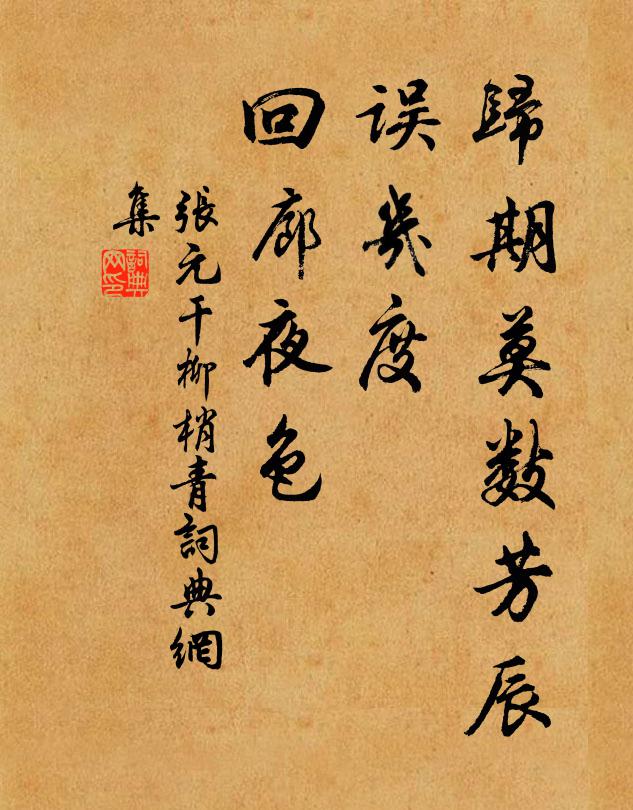 歸期莫數芳辰
误幾度
回廊夜色
張元干柳梢青詞典網
集
詞典网印